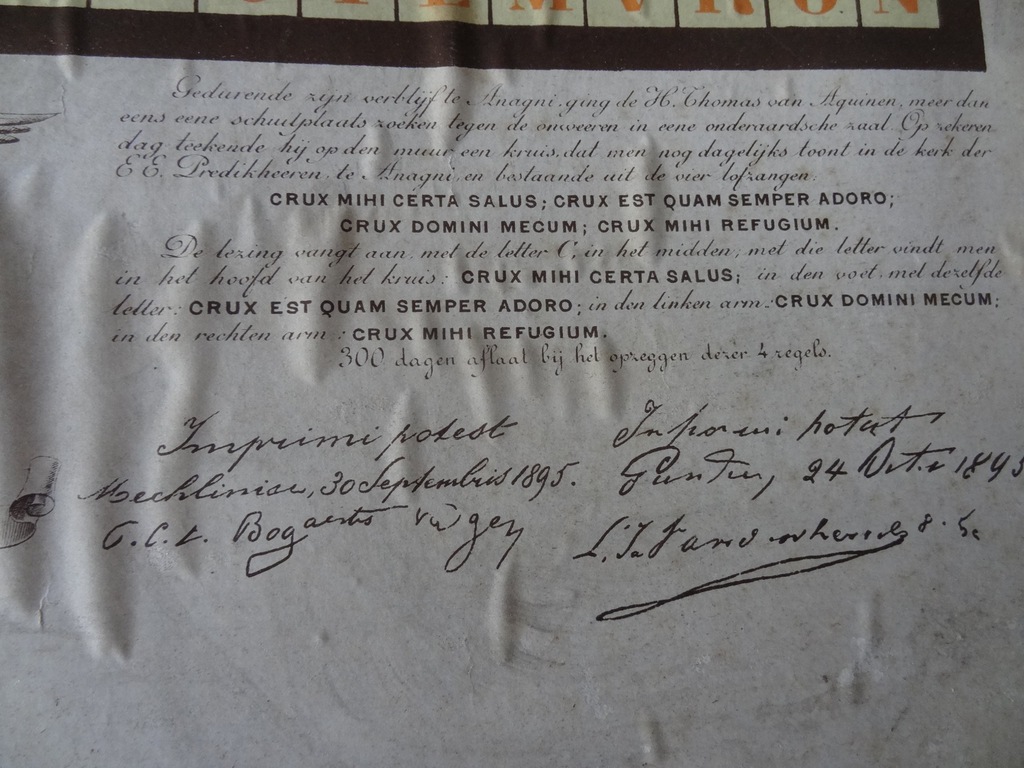 T E M V R O N
Gedurende zijn verblijf te Anagni, ging de H. Thomas van Aquinen, meer dan
eens eene schuilplaats zoeken tegen de onweeren in eene onderaardsche zaal. Op zekeren
dag teekende hij op den muur een kruis, dat men nog dagelijks toont in de kerk der
E E. Predikheeren, te Anagni, en bestaande uit de vier lofzangen:
CRUX MIHI CERTA SALUS; CRUX EST QUAM SEMPER ADORO;
CRUX DOMINI MECUM; CRUX MIHI REFUGIUM.
De lezing vangt aan, met de letter C, in het midden; met die letter vindt men
in het hoofd van het kruis: CRUX MIHI CERTA SALUS; in den voet, met dezelfde
letter: CRUX EST QUAM SEMPER ADORO; in den linken arm: CRUX DOMINI MECUM;
in den rechten arm: CRUX MIHI REFUGIUM.
300 dagen aflaat bij het opzeggen dezer 4 regels.
Imprimi potest
Mechliniae, 30 Septembris 1895.
Bogaerts
Imprimi potest
24 Oct. 1895